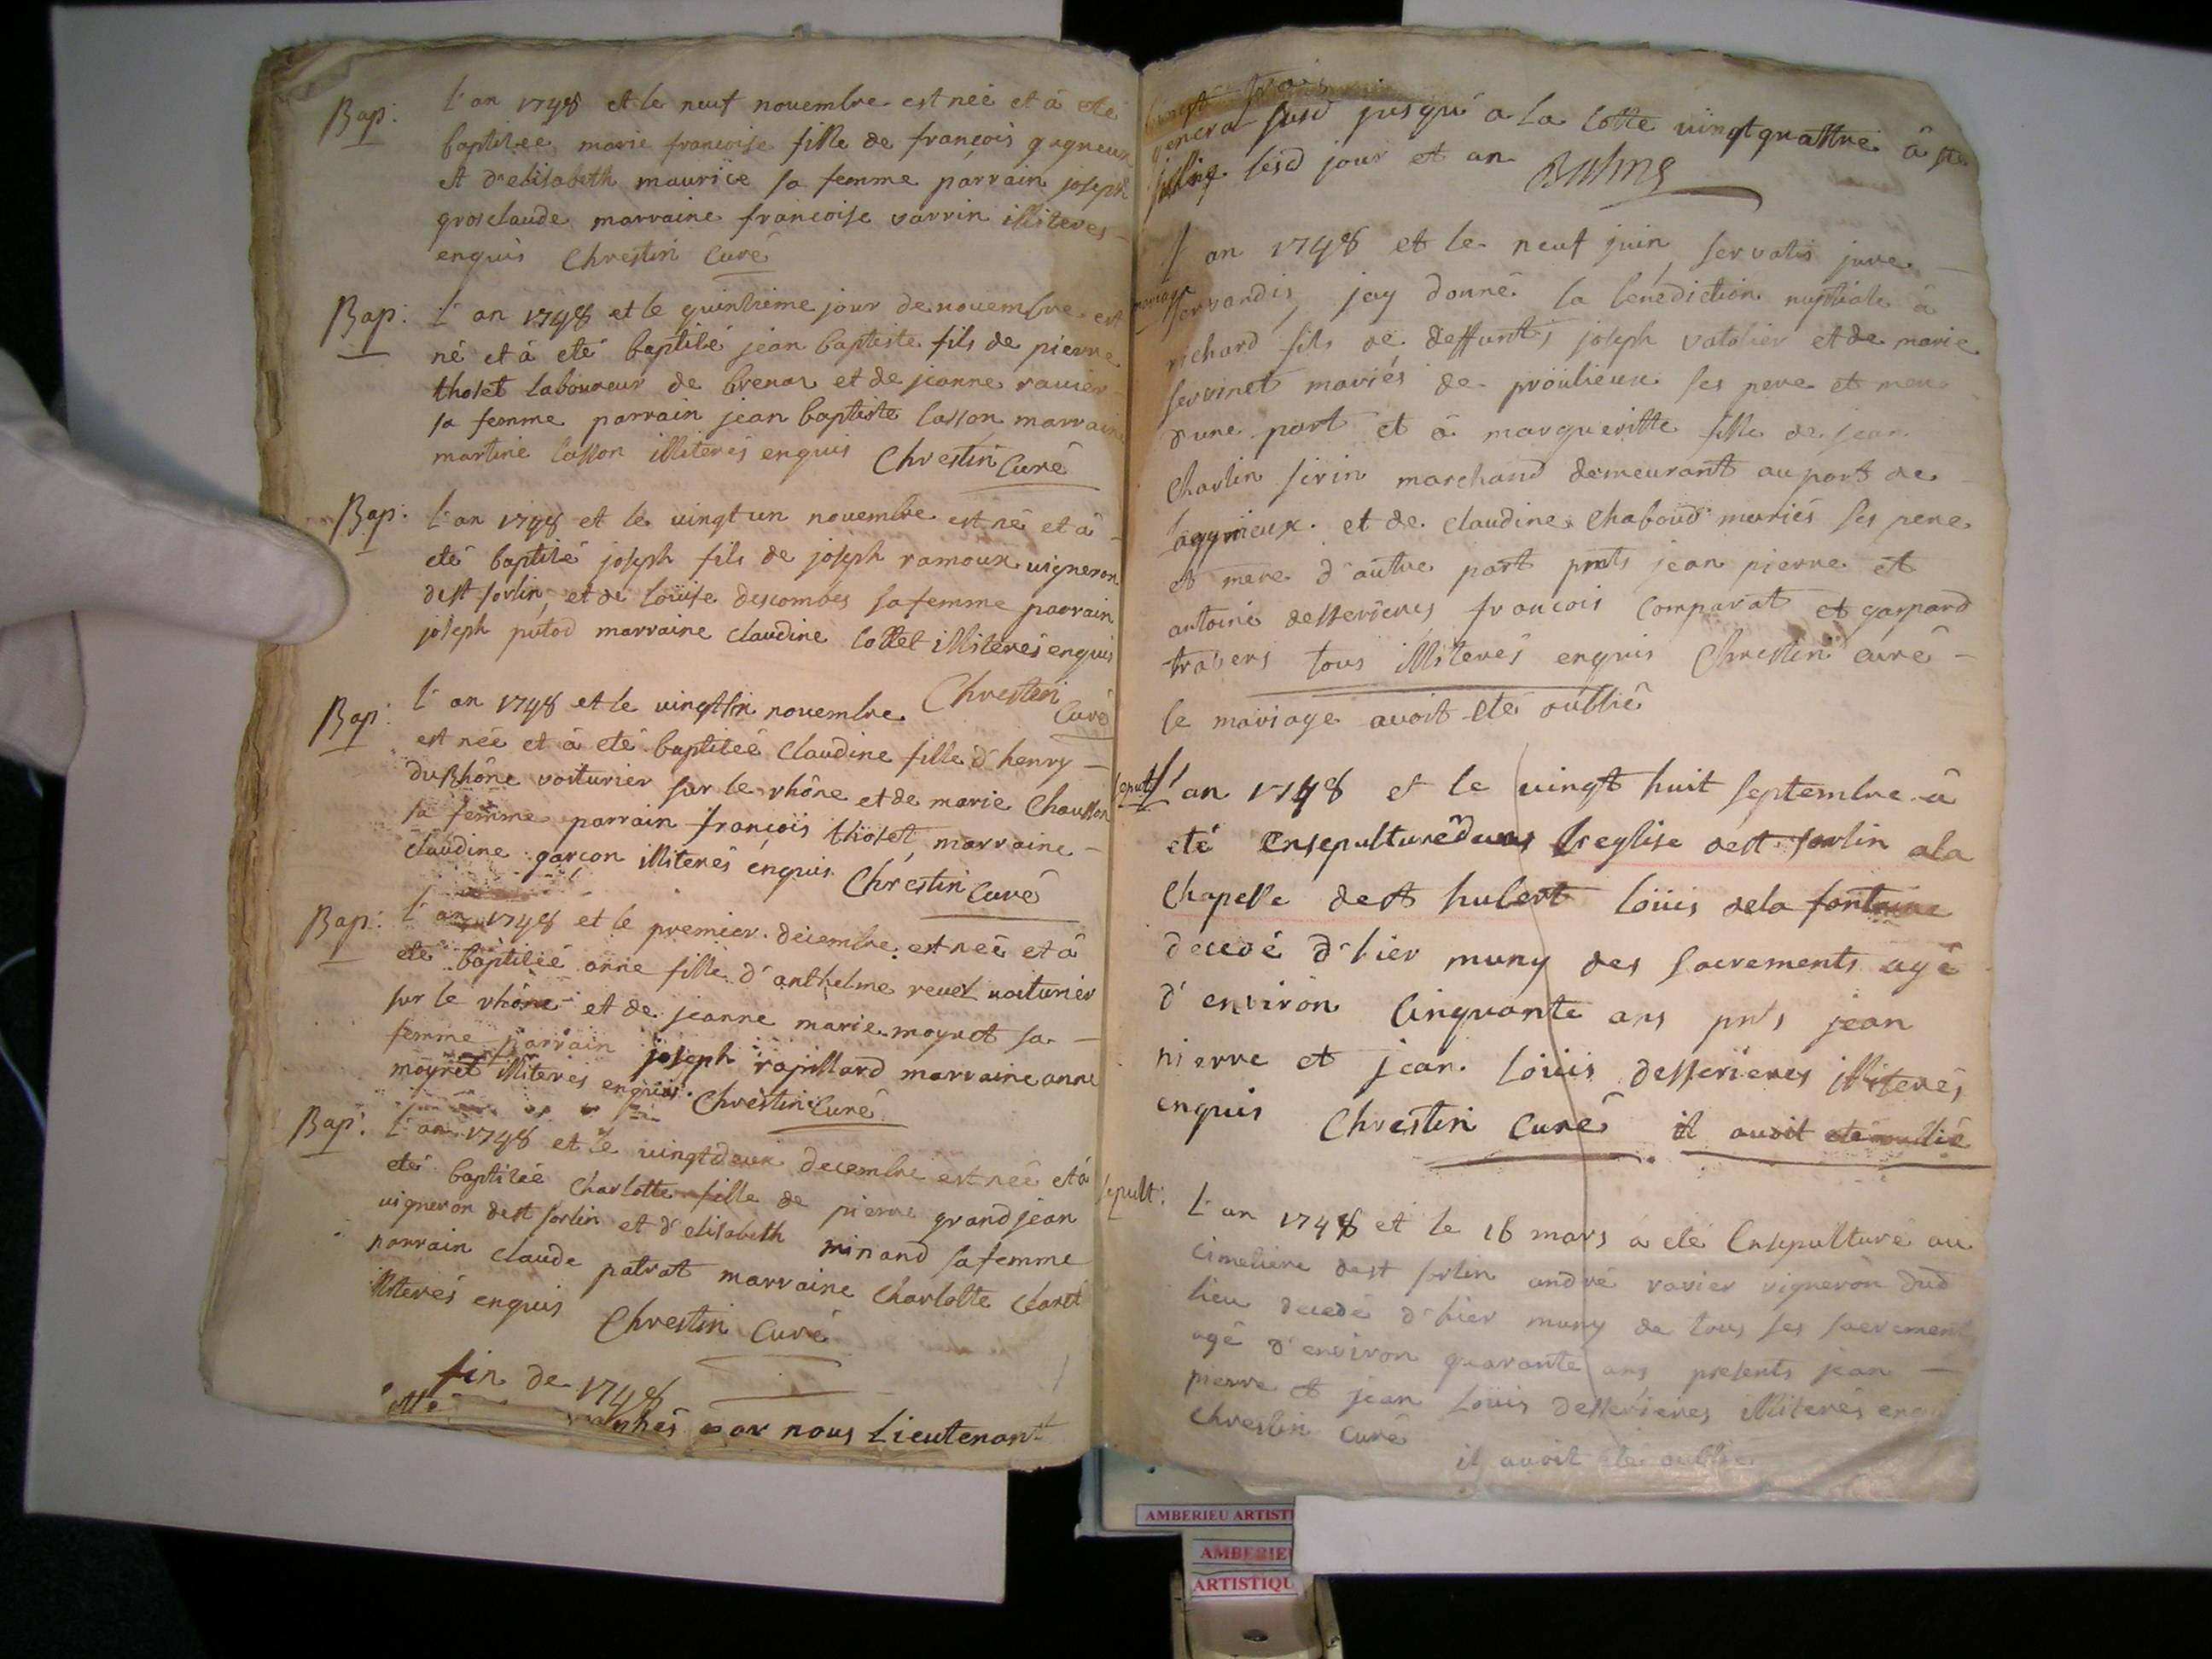 Bap: L'an 1748 et le neuf novembre est née et à eté
baptisee marie francoise fille de françois gagneux
et d'elisabeth maurice sa femme parrain joseph
grosclaude marraine francoise varrin illiteres
enquis Chrestin Curé
Bap: L'an 1748 et le quinzieme jour de novembre est
né et à eté baptisé jean baptiste fils de pierre
tholet laboureur de brenaz et de jeanne ravier
sa femme parrain jean baptiste lasson marraine
martine lasson illiterés enquis Chrestin Curé
Bap: L'an 1748 et le vingt un novembre est né et à
eté baptisé joseph fils de joseph ramoux vigneron
de st sorlin, et de Loüise descombes sa femme parrain
joseph putod marraine claudine Collet illiterés enquis
Chrestin Curé
Bap: L'an 1748 et le vingt six novembre
est née et à eté baptiseé Claudine fille d'henry
du Rhône voiturier sur le rhône et de marie Chausson
sa femme parrain françois tholet, marraine
claudine garçon illiterés enquis Chrestin Curé
Bap: L'an 1748 et le premier decembre est neé et à
eté baptiseé anne fille d'anthelme revel voiturier
sur le rhône et de jeanne marie moyret sa
femme parrain joseph rapillard marraine anne
moyret illiterés enquis Chrestin Curé
Bap: L'an 1748 et le vingt deux decembre est neé et à
eté baptiseé Charlotte fille de pierre grandjean
vigneron de st sorlin et d'elisabeth minand sa femme
parrain claude patrat marraine Charlotte
illiterés enquis Chrestin Curé
fin de 1748
par nous Lieutenant
general susd jusqu'a la Cotte vingt quattre à
lesd jour et an
L'an 1748 et le neuf juin, servatis jure
mariage servandis, jay donné la benediction nuptiale à
richard fils de deffunts joseph vatolier et de marie
servinet mariés de proulieux ses pere et mere
d'une part et à margueritte fille de jean
Charlin sirin marchand demeurant au port de
lagnieux et de claudine Chaboud mariés ses pere
et mere d'autre part pnts jean pierre et
antoine desserieres, francois Comparat et gaspard
travers tous illiterés enquis Chrestin curé
le mariage avoit eté oublié
sepult L'an 1748 et le vingt huit septembre à
eté Ensepulturé dans l'eglise de st sorlin a la
Chapelle de st hubert Loüis de la fontaine
decedé d'hier muny des sacrements agé
d'environ Cinquante ans pnts jean
pierre et jean Loüis desserieres illiterés
enquis Chrestin Curé il avoit eté oublié
sepult: L'an 1748 et le 18 mars a eté Ensepulturé au
Cimetiere de st sorlin andré ravier vigneron dud
lieu decedé d'hier muny de tous ses sacrements
agé d'environ quarante ans presents jean
pierre et jean Loüis desserieres illiterés enquis
Chrestin Curé
il avoit eté oublié
AMBERIEU ARTISTI
AMBERIE
ARTISTIQU